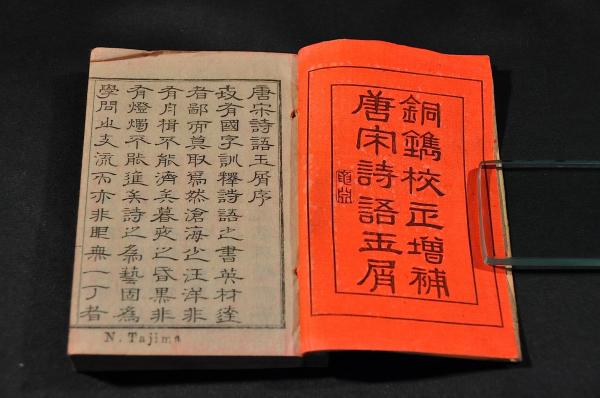 銅鐫校正增補
唐宋詩語玉屑
唐宋詩語玉屑序
有國字訓釋詩語之書英材達
者鄙而莫取焉然滄海之汪洋非
有舟楫不能濟矣暮夜之昏黑非
有燈燭不能進矣詩之為藝固為
學問之支流而亦非眼無一丁者
N. Tajima